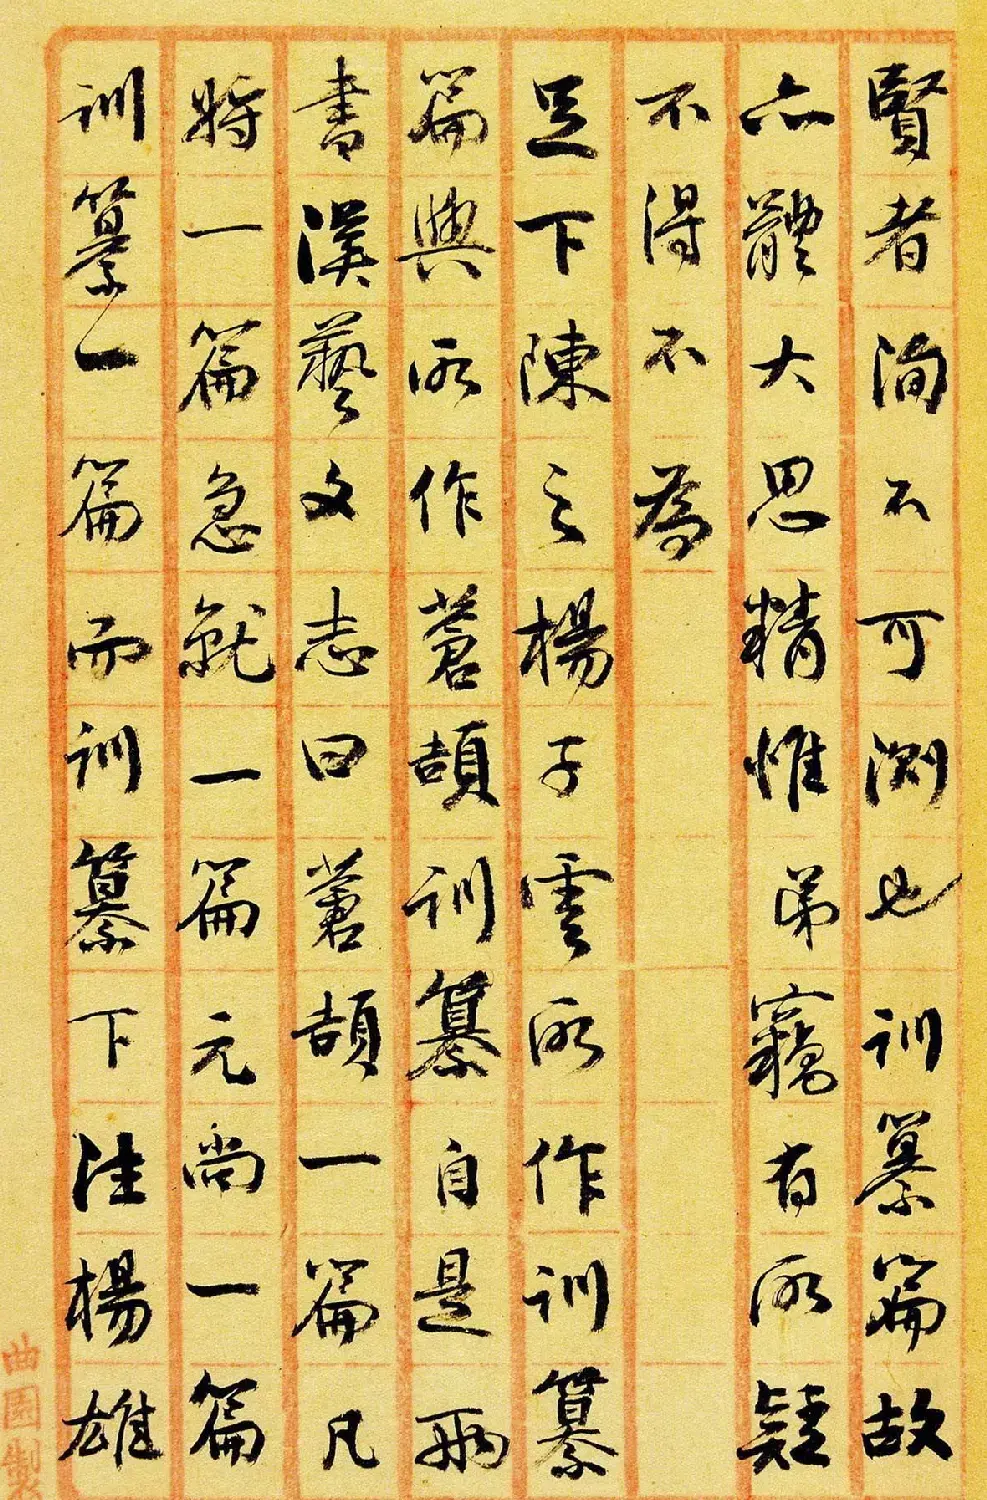 賢者洵不可測也訓纂篇故
六體大思精惟弟竊有所疑
不得不為
足下陳之楊子雲所作訓纂
篇與所作蒼頡訓纂自是兩
書漢藝文志曰蒼頡一篇凡
將一篇急就一篇元尚一篇
訓纂一篇而訓纂下注楊雄
曲園製